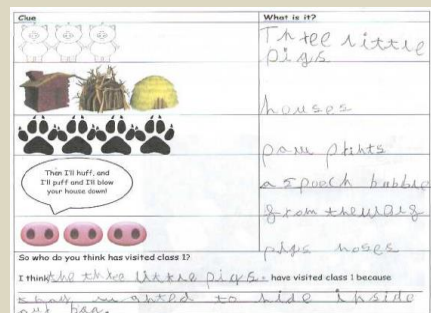 Clue
What is it?
Three little
pigs
houses
paw prints
Then I'll huff, and
I'll puff and I'll blow
your house down!
a speech bubble
from the
pigs noses
So who do you think has visited class 1?
I think the three little pigs. have visited class 1 because
to hide inside
our